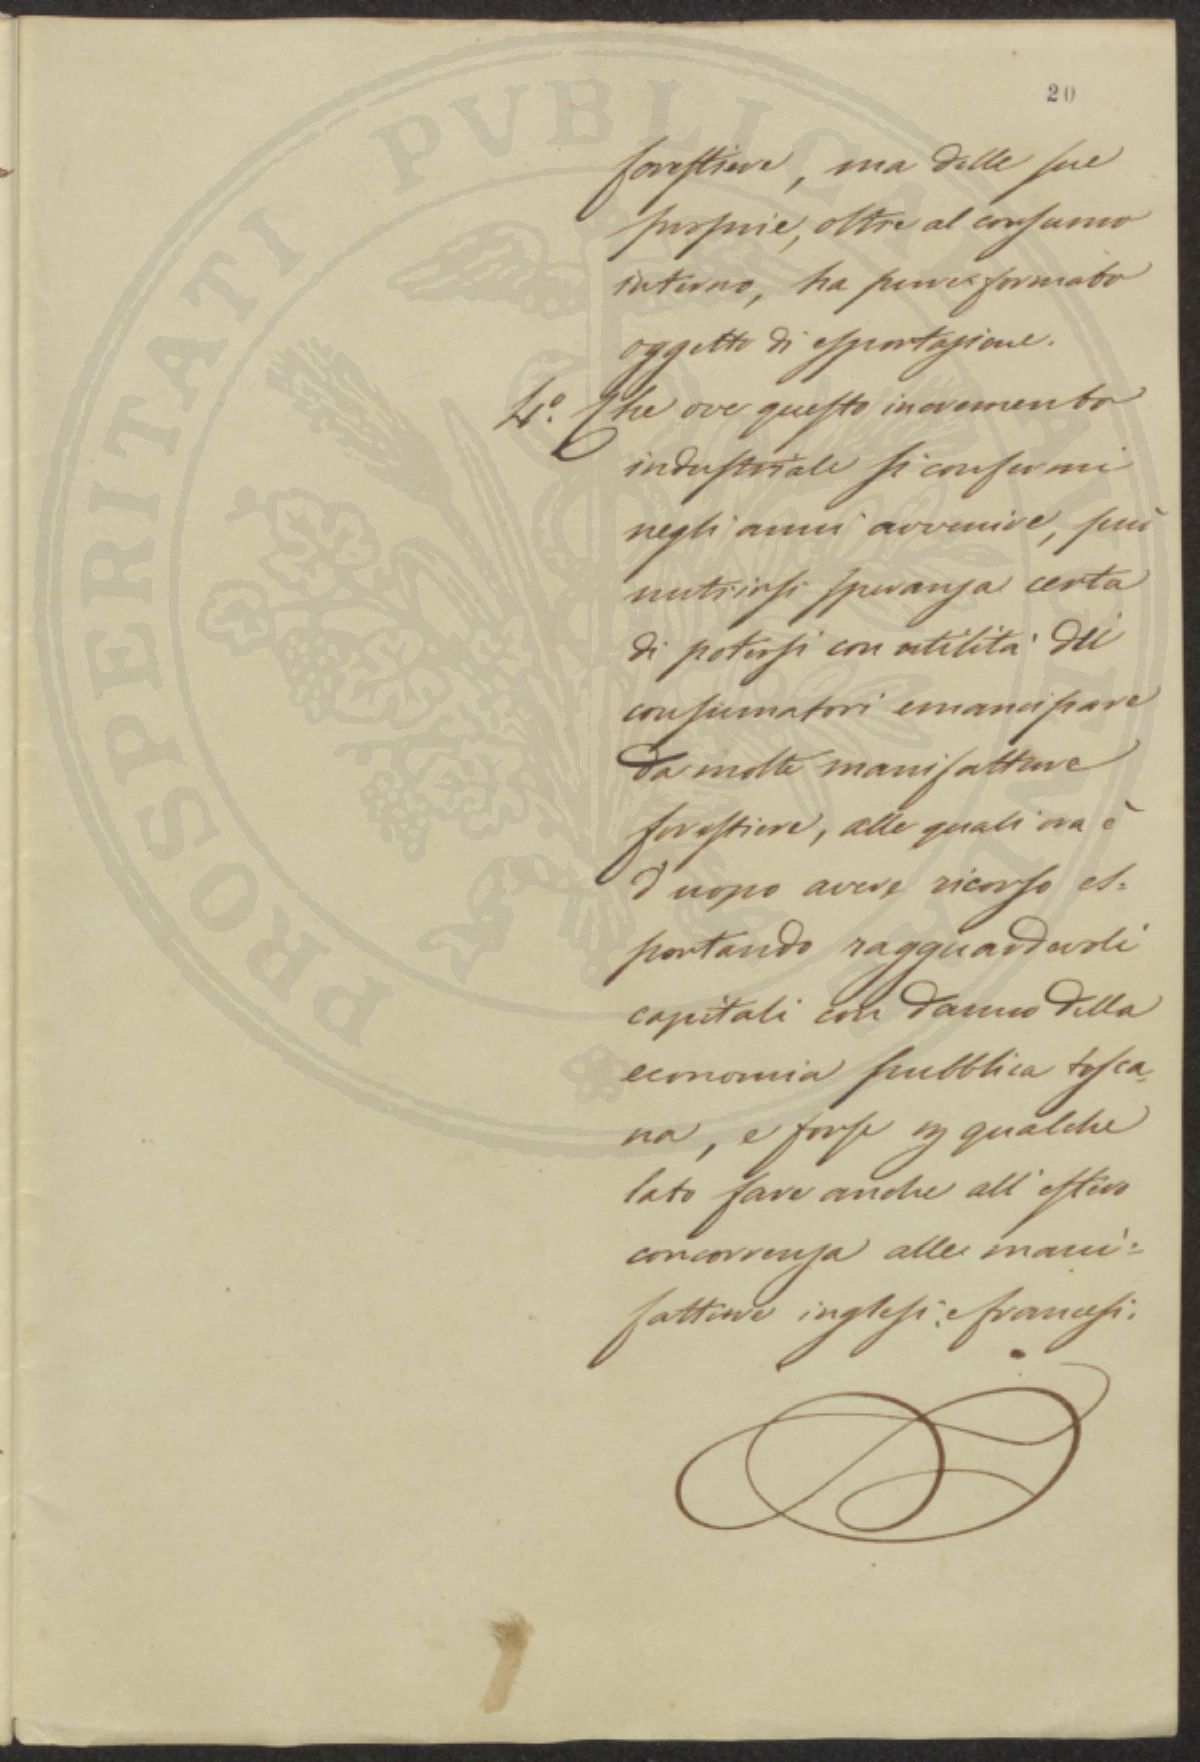 20
forestiere, ma delle sue
proprie, oltre al consumo
interno, ha pure formato
oggetto di esportazione.
4.° Che ove questo incremento
industriale si confermi
negli anni avvenire, può
nutrirsi speranza certa
di potersi con utilità dei
consumatori emancipare
da molte manifatture
forestiere, alle quali ora è
d'uopo avere ricorso es=
portando ragguardevoli
capitali con danno della
economia pubblica tosca=
na, e forse in qualche
lato fare anche all'estero
concorrenza alle mani=
fatture inglesi, e francesi.
PROSPERITATI PVBLICAE